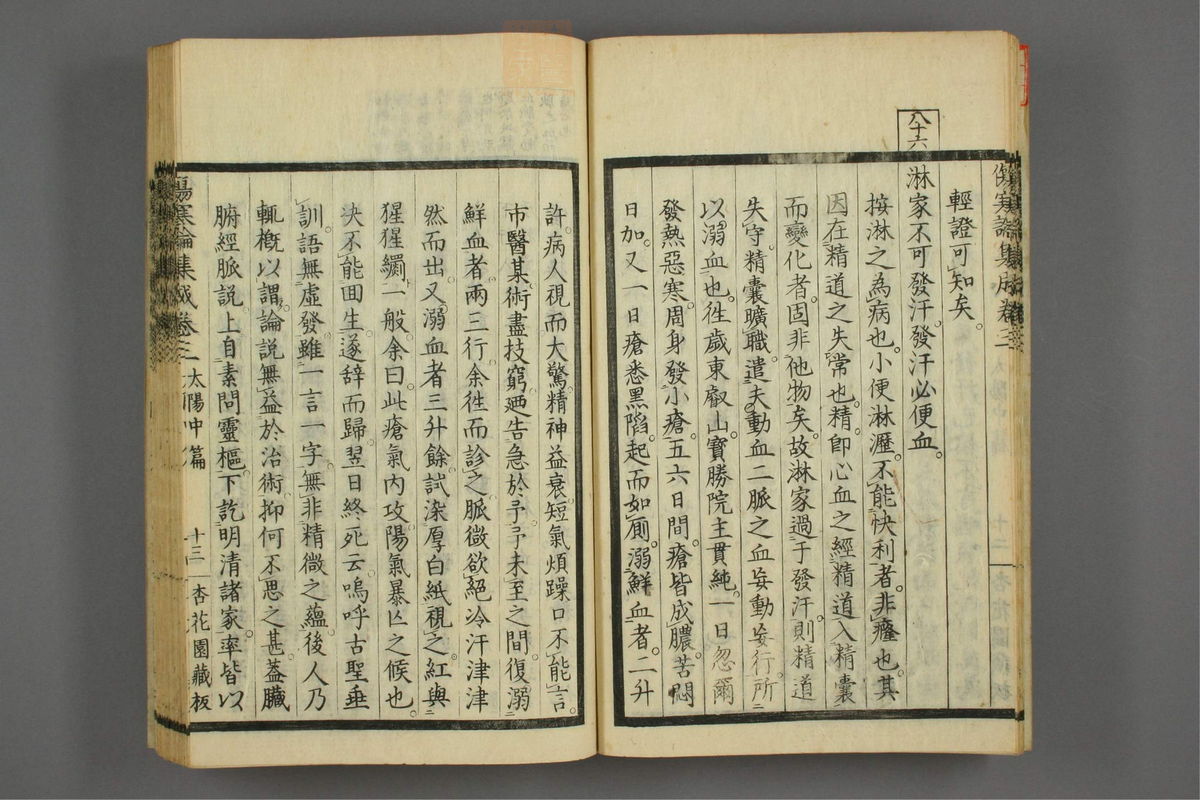 傷寒論集成卷三
輕證可知矣。
八十六
淋家不可發汗。發汗必便血。
按淋之為病也。小便淋瀝。不能快利者。非癃也。其
因在精道之失常也。精卽心血之經精道入精囊
而變化者。固非他物矣。故淋家過于發汗。則精道
失守。精囊曠職。遣夫動血二脈之血妄動妄行。所
以溺血也。徃歲東叡山寶勝院主貫純。一日忽爾
發熱惡寒。周身發小瘡。五六日間。瘡皆成膿。苦悶
日加。又一日瘡悉黑陷。起而如厠。溺鮮血者。二升
許。病人視而大驚。精神益衰。短氣煩躁。口不能言。
市醫某。術盡技窮。廼告急於予。予未至之間。復溺
鮮血者。兩三行。余徃而診之。脈微欲絕。冷汗津津
然而出。又溺血者三升餘。試染厚白紙視之。紅與
猩猩纈一般。余曰。此瘡氣內攻。陽氣暴亾之候也。
决不能回生。遂辞而歸。翌日終死云。嗚呼古聖垂
訓。語無虛發。雖一言一字。無非精微之蘊。後人乃
輒槪以謂。論說無益於治術。抑何不思之甚。蓋臟
腑經脈說。上自素問靈樞。下訖明清諸家。率皆以
傷寒論集成卷三 太陽中篇 十三 杏花園藏板